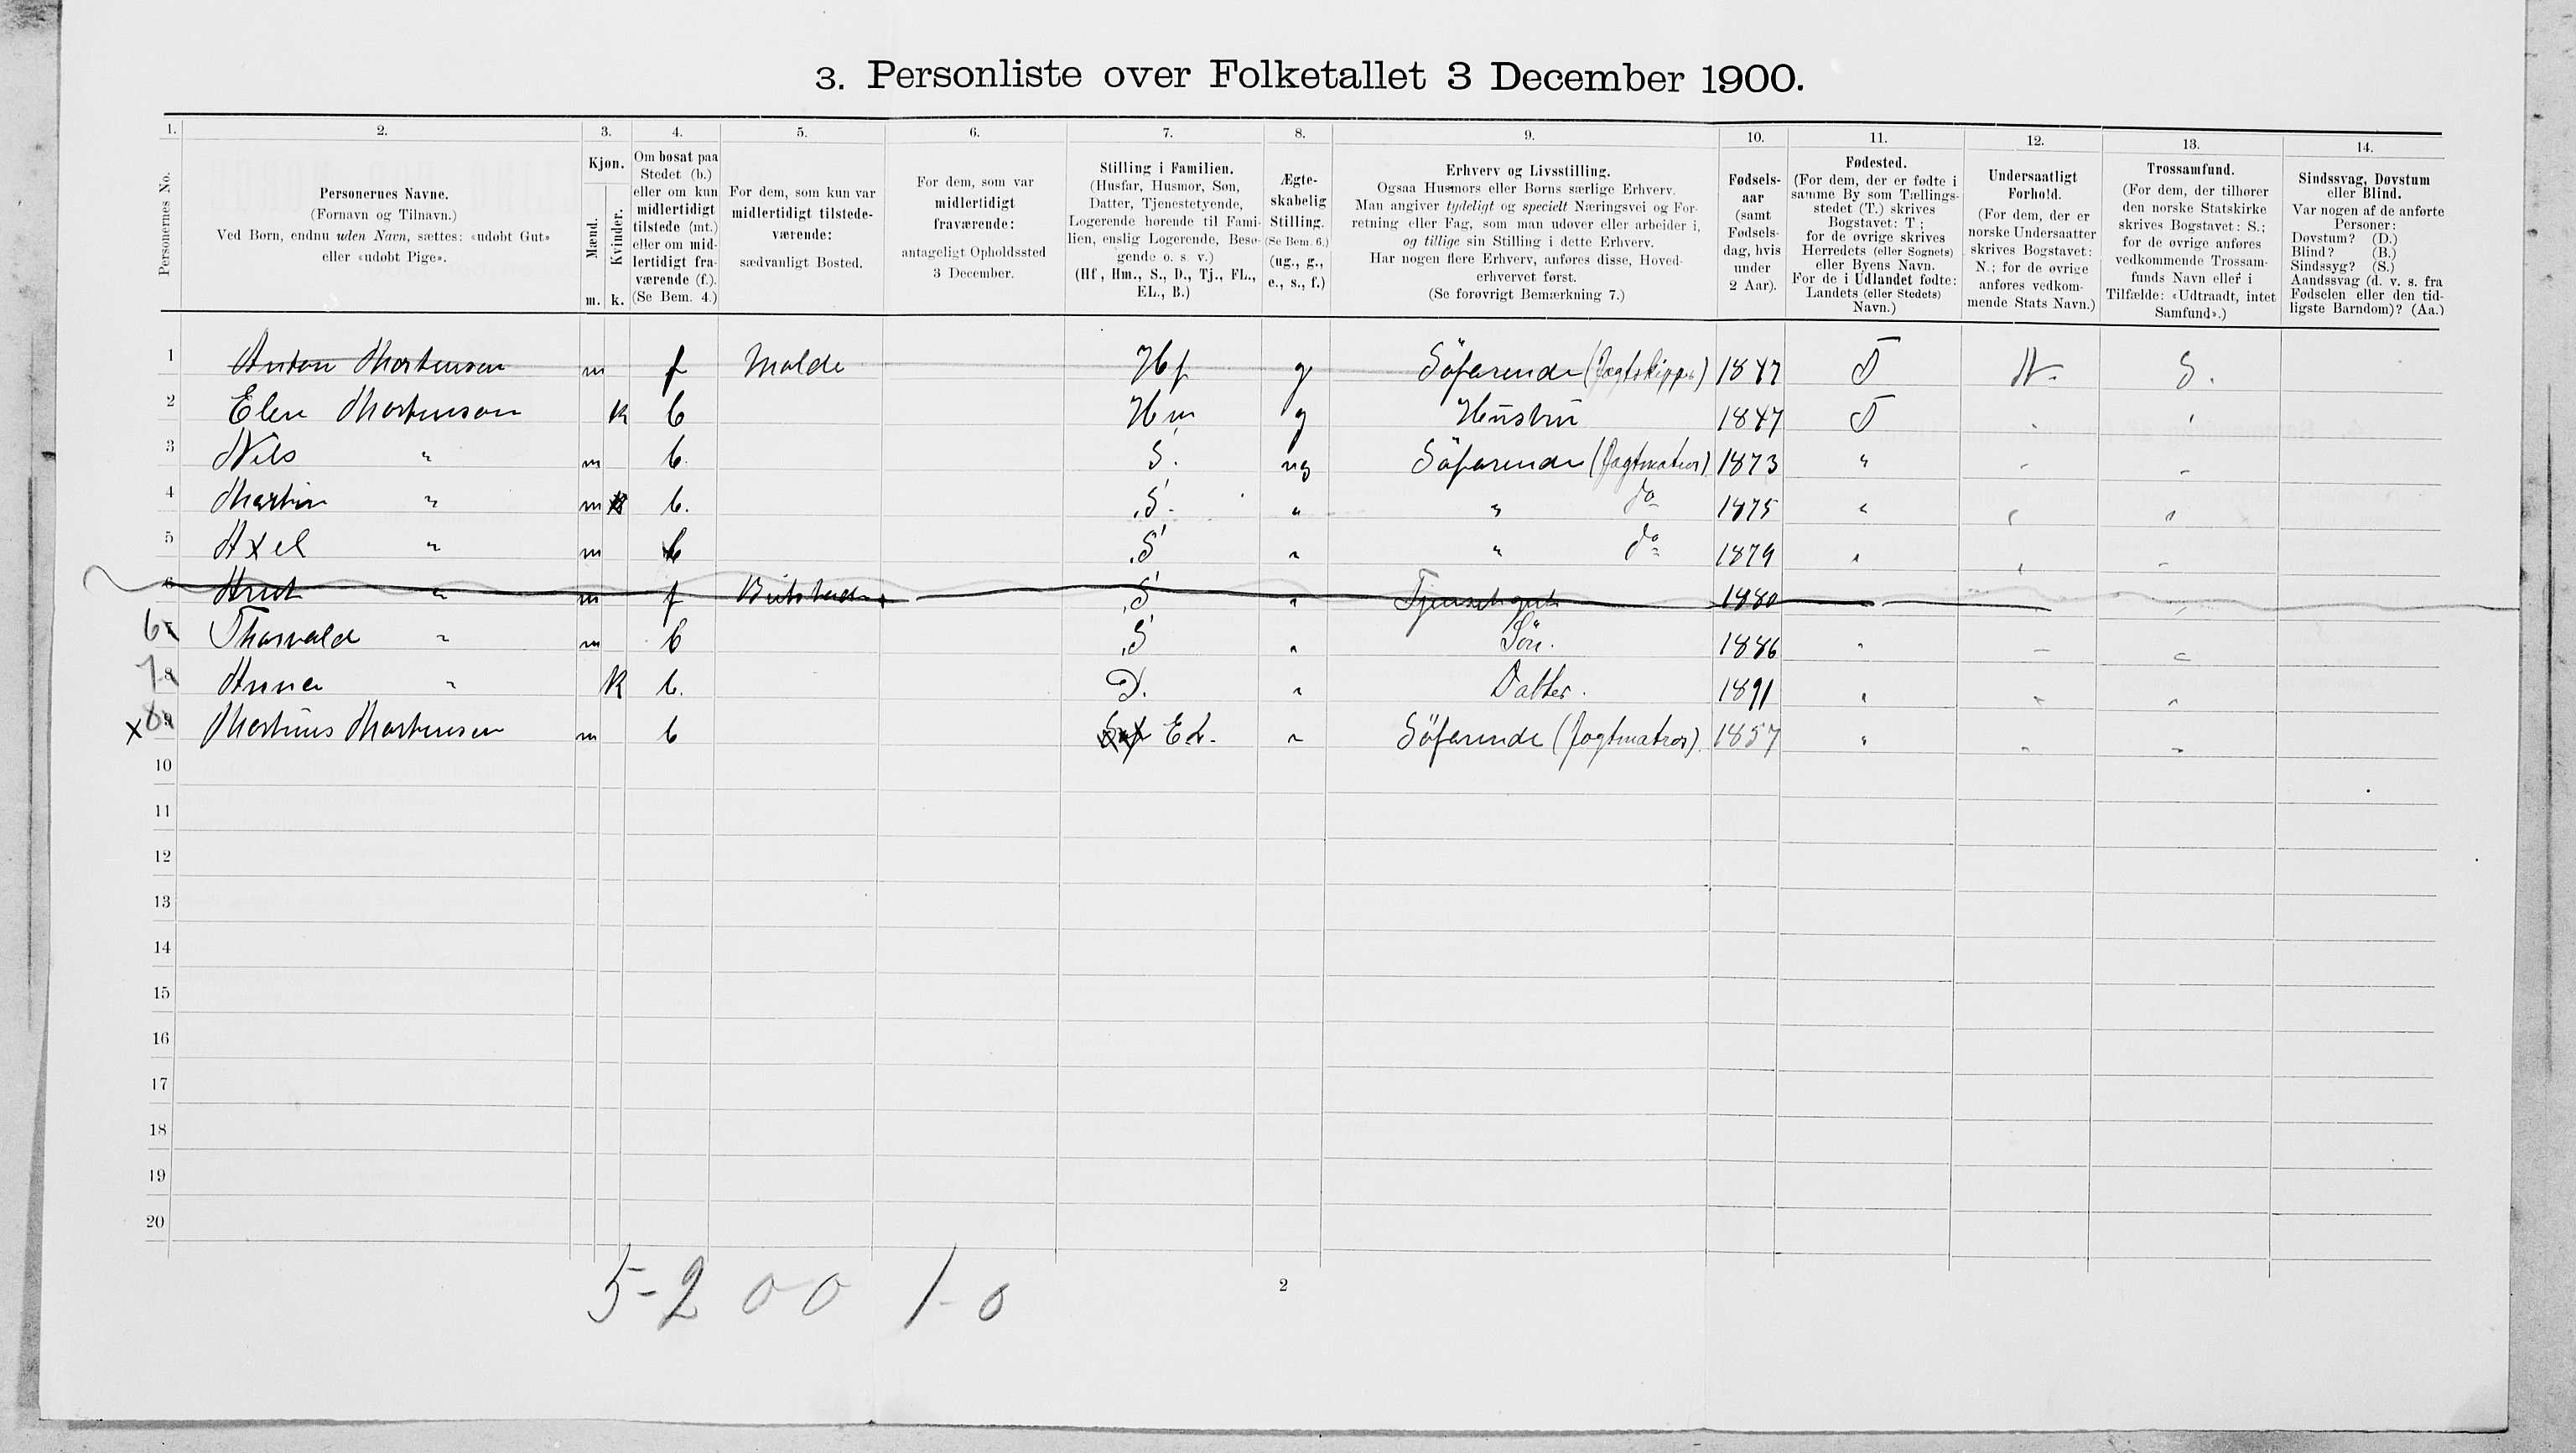 3. Personliste over Folketallet 3 December 1900.
1. 2. 3. 4. 5. 6. 7. 8. 9. 10. 11. 12. 13. 14.
Personernes No.
Personernes Navne.
(Fornavn og Tilnavn.)
Ved Børn, endnu uden Navn, sættes: «udøbt Gut»
eller «udøbt Pige».
Kjøn.
Mænd.
Kvinder.
m. k.
Om bosat paa
Stedet (b.)
eller om kun
midlertidigt
tilstede (mt.)
eller om mid-
lertidigt fra-
værende (f.).
(Se Bem. 4.)
For dem, som kun var
midlertidigt tilstede-
værende:
sædvanligt Bosted.
For dem, som var
midlertidigt
fraværende:
antageligt Opholdssted
3 December.
Stilling i Familien.
(Husfar, Husmor, Søn,
Datter, Tjenestetyende,
Logerende hørende til Fami-
lien, enslig Logerende, Besø-
gende o. s. v.)
(Hf., Hm., S., D., Tj., FL.,
EL., B.)
Ægte-
skabelig
Stilling.
(Se Bem. 6.)
(ug., g.,
e., s., f.)
Erhverv og Livsstilling.
Ogsaa Husmors eller Børns særlige Erhverv.
Man angiver tydeligt og specielt Næringsvei og For-
retning eller Fag, som man udøver eller arbeider i,
og tillige sin Stilling i dette Erhverv.
Har nogen flere Erhverv, anføres disse, Hoved-
erhvervet først.
(Se forøvrigt Bemærkning 7.)
Fødsels-
aar
(samt
Fødsels-
dag, hvis
under
2 Aar).
Fødested.
(For dem, der er fødte i
samme By som Tællings-
stedet (T.) skrives
Bogstavet: T.;
for de øvrige skrives
Herredets (eller Sognets)
eller Byens Navn.
For de i Udlandet fødte:
Landets (eller Stedets)
Navn.)
Undersaatligt
Forhold.
(For dem, der er
norske Undersaatter
skrives Bogstavet:
N.; for de øvrige
anføres vedkom-
mende Stats Navn.)
Trossamfund.
(For dem, der tilhører
den norske Statskirke
skrives Bogstavet: S.;
for de øvrige anføres
vedkommende Trossam-
funds Navn eller i
Tilfælde: «Udtraadt, intet
Samfund».)
Sindssvag, Døvstum
eller Blind.
Var nogen af de anførte
Personer:
Døvstum? (D.)
Blind? (B.)
Sindssyg? (S.)
Aandssvag (d. v. s. fra
Fødselen eller den tid-
ligste Barndom)? (Aa.)
1 Anton Mortensen m f Molde Hf g Söfarende (Jagtskipper) 1847 T N. S.
2 Elen Mortensen k b Hm g Hustru 1847 T
3 Nils " m b. S. ug Söfarende (Jagtmatros) 1873 "
4 Martin " m k b. S. " " do 1875 "
5 Axel " m b S " " do 1879 "
6 " m f S " 1880
6 7 Thorvald " m b S " Sön. 1886 "
7 8 Anna " k b. D. " Datter. 1891 "
x 8 9 Martinus Mortensen m b EL. " Söfarende (Jagtmatros) 1857 "
10
11
12
13
14
15
16
17
18
19
20
5-2 0 0 1-0
2